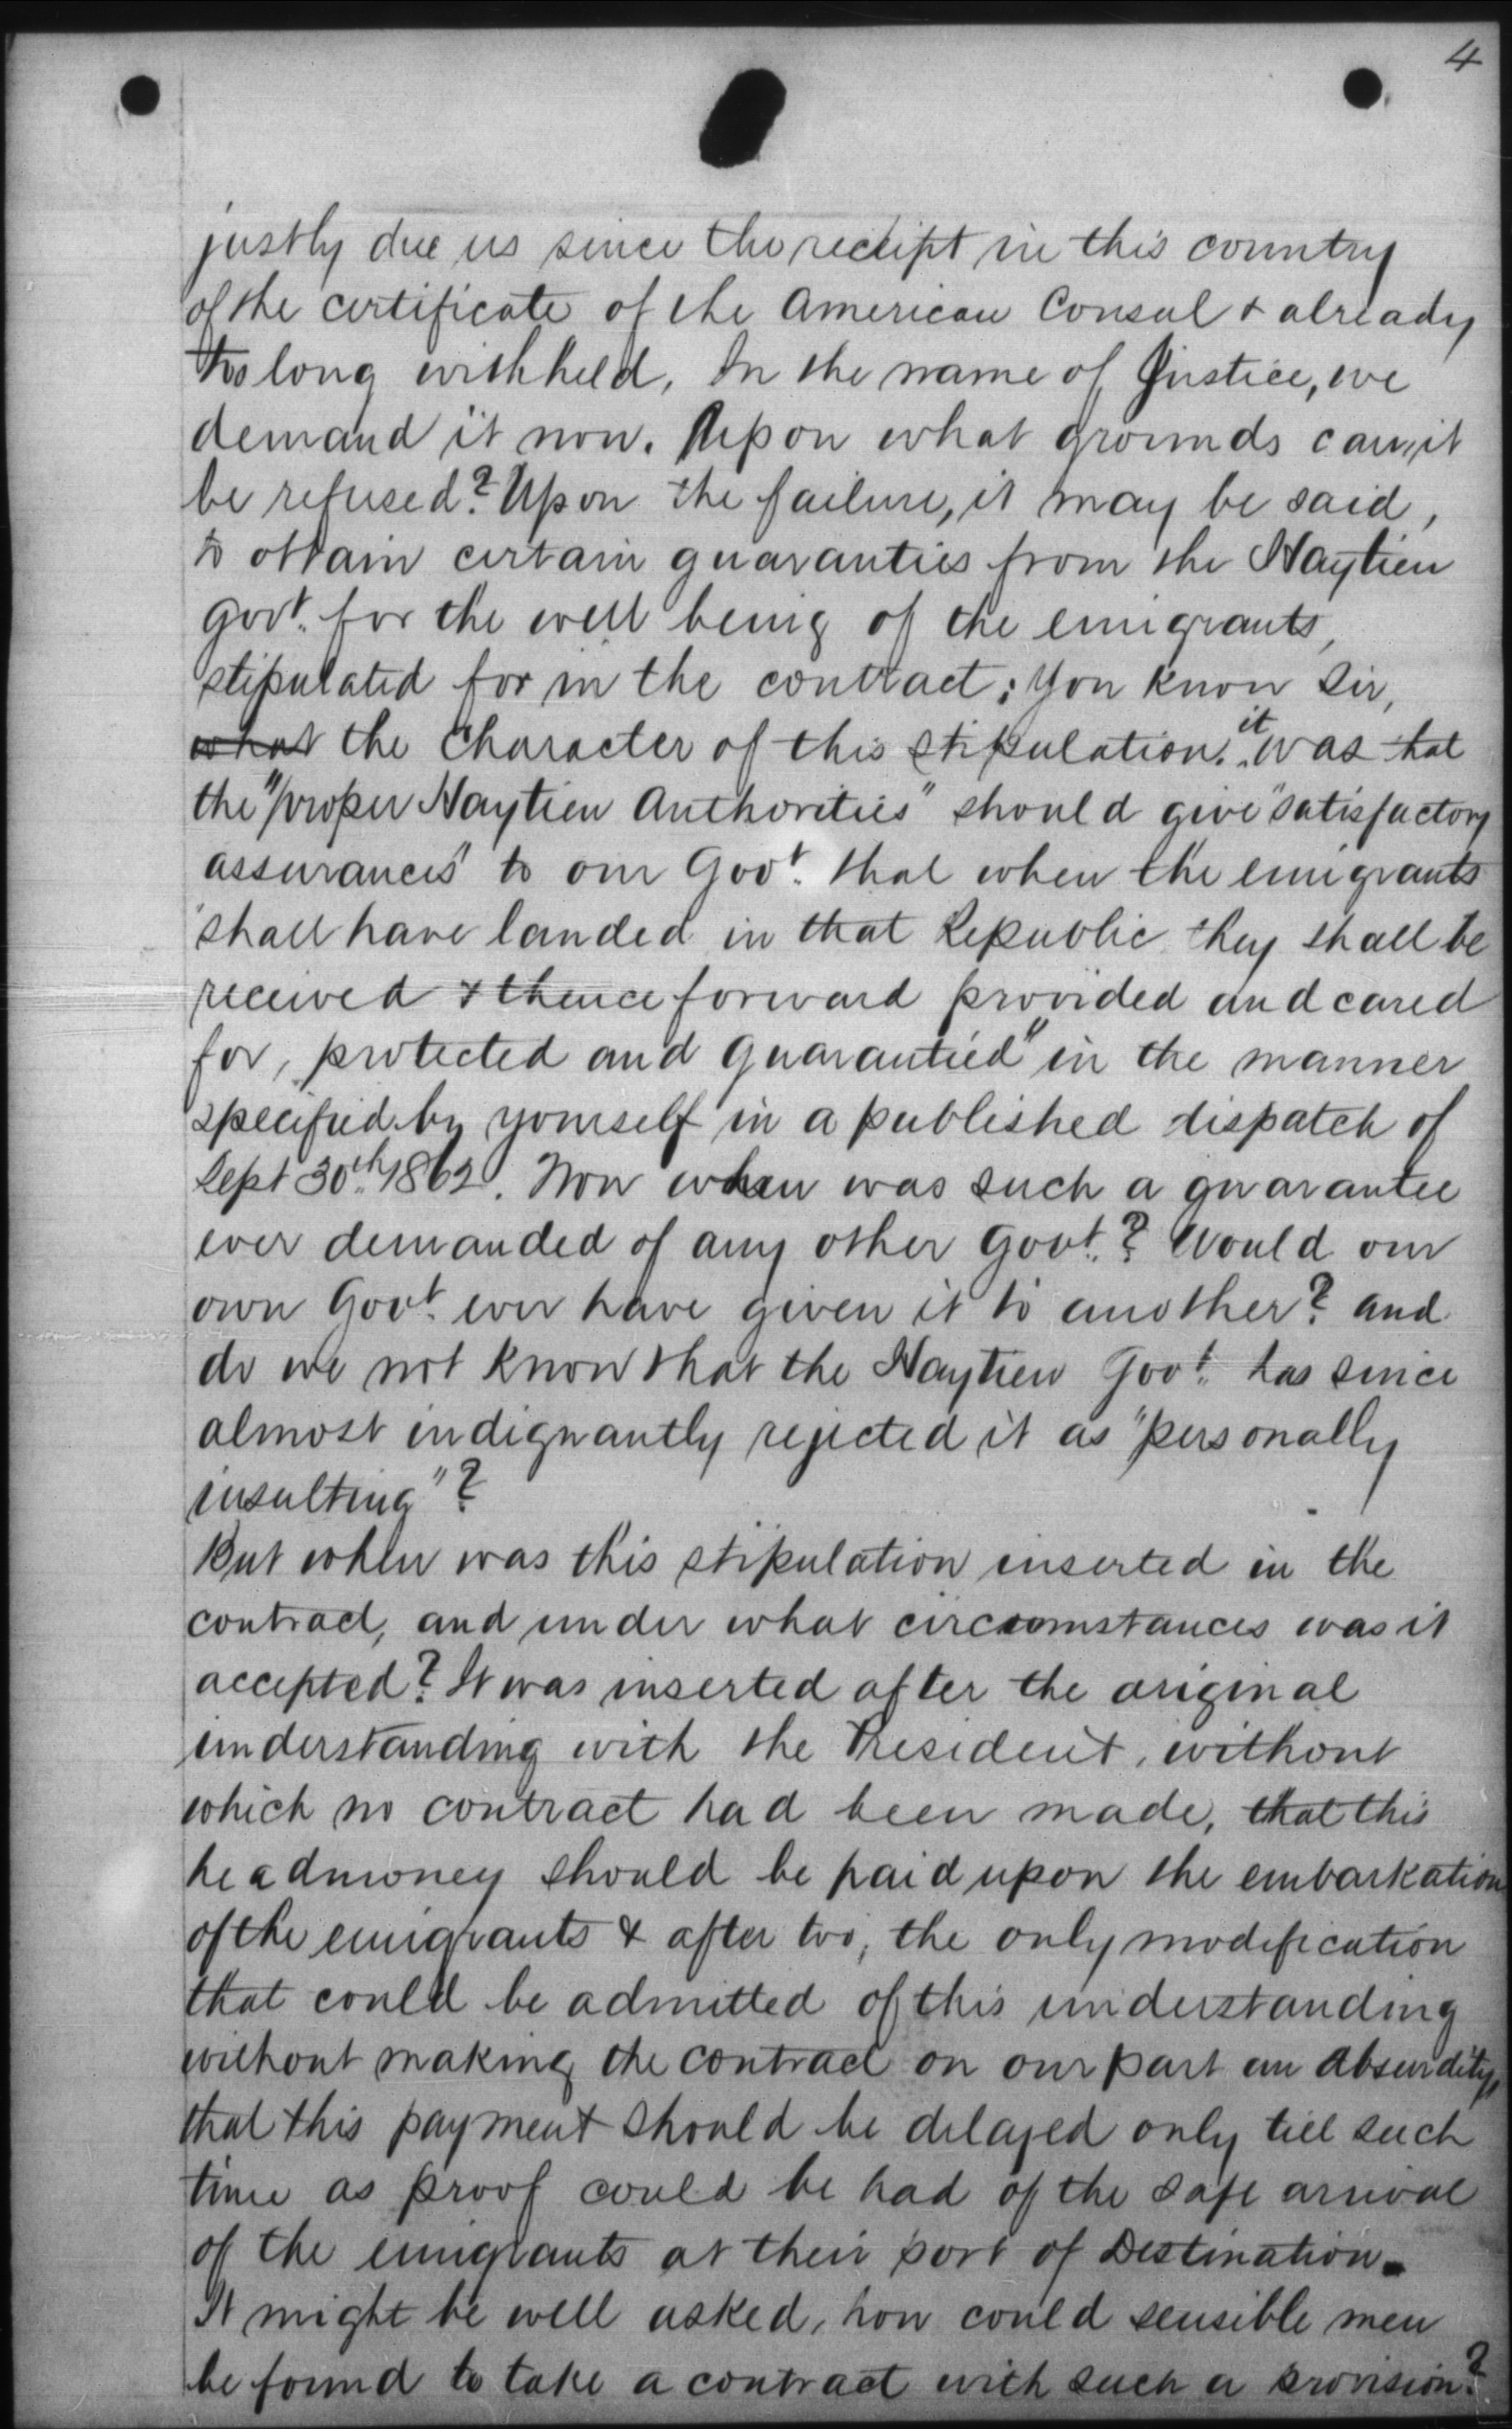 4
justly due us since the receipt in this country
of the certificate of the American Consul & already
too long withheld. In the name of Justice, we
demand it now. Upon what grounds can it
be refused? Upon the failure, it may be said,
to obtain certain guaranties from the Haytien
Govt. for the well being of the emigrants,
stipulated for in the contract; You know Sir,
what the character of this stipulation. it was that
the "proper Haytien Authorities" should give "satisfactory
assurances" to our Govt. that when the emigrants
"shall have landed in that Republic they shall be
received & thenceforward provided and cared
for, protected and guarantied" in the manner
specified by yourself in a published dispatch of
Sept 30th. 1862. Now when was such a guarantee
ever demanded of any other Govt.? Would our
own Govt. ever have given it to another? and
do we not know that the Haytien Govt. has since
almost indignantly rejected it as "personally
insulting"?
But when was this stipulation inserted in the
contract, and under what circcomstances was it
accepted? It was inserted after the original
understanding with the President, without
which no contract had been made, that this
headmoney should be paid upon the embarkation
of the emigrants & after two, the only modification
that could be admitted of this understanding
without making the contract on our part an absurdity,
that this payment should be delayed only till such
time as proof could be had of the safe arrival
of the emigrants at their port of Destination.
It might be well asked, how could sensible men
be found to take a contract with such a provision?